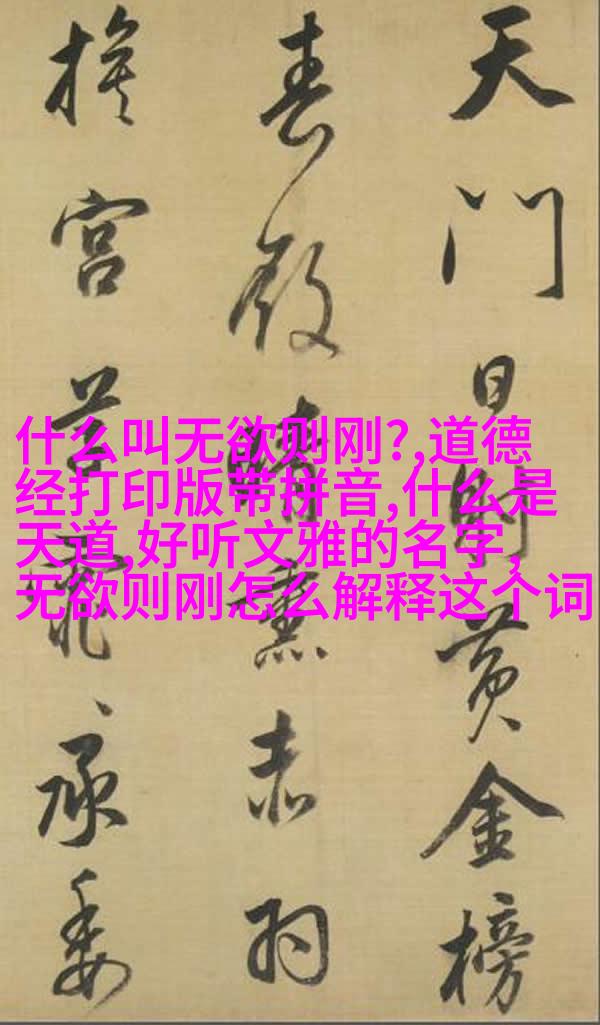 天門日射黄金榜
春殿晴熏赤羽
旂宫草霏〻承委
什么叫无欲则刚?,道德
经打印版带拼音,什么是
天道,好听文雅的名字,
无欲则刚怎么解释这个词